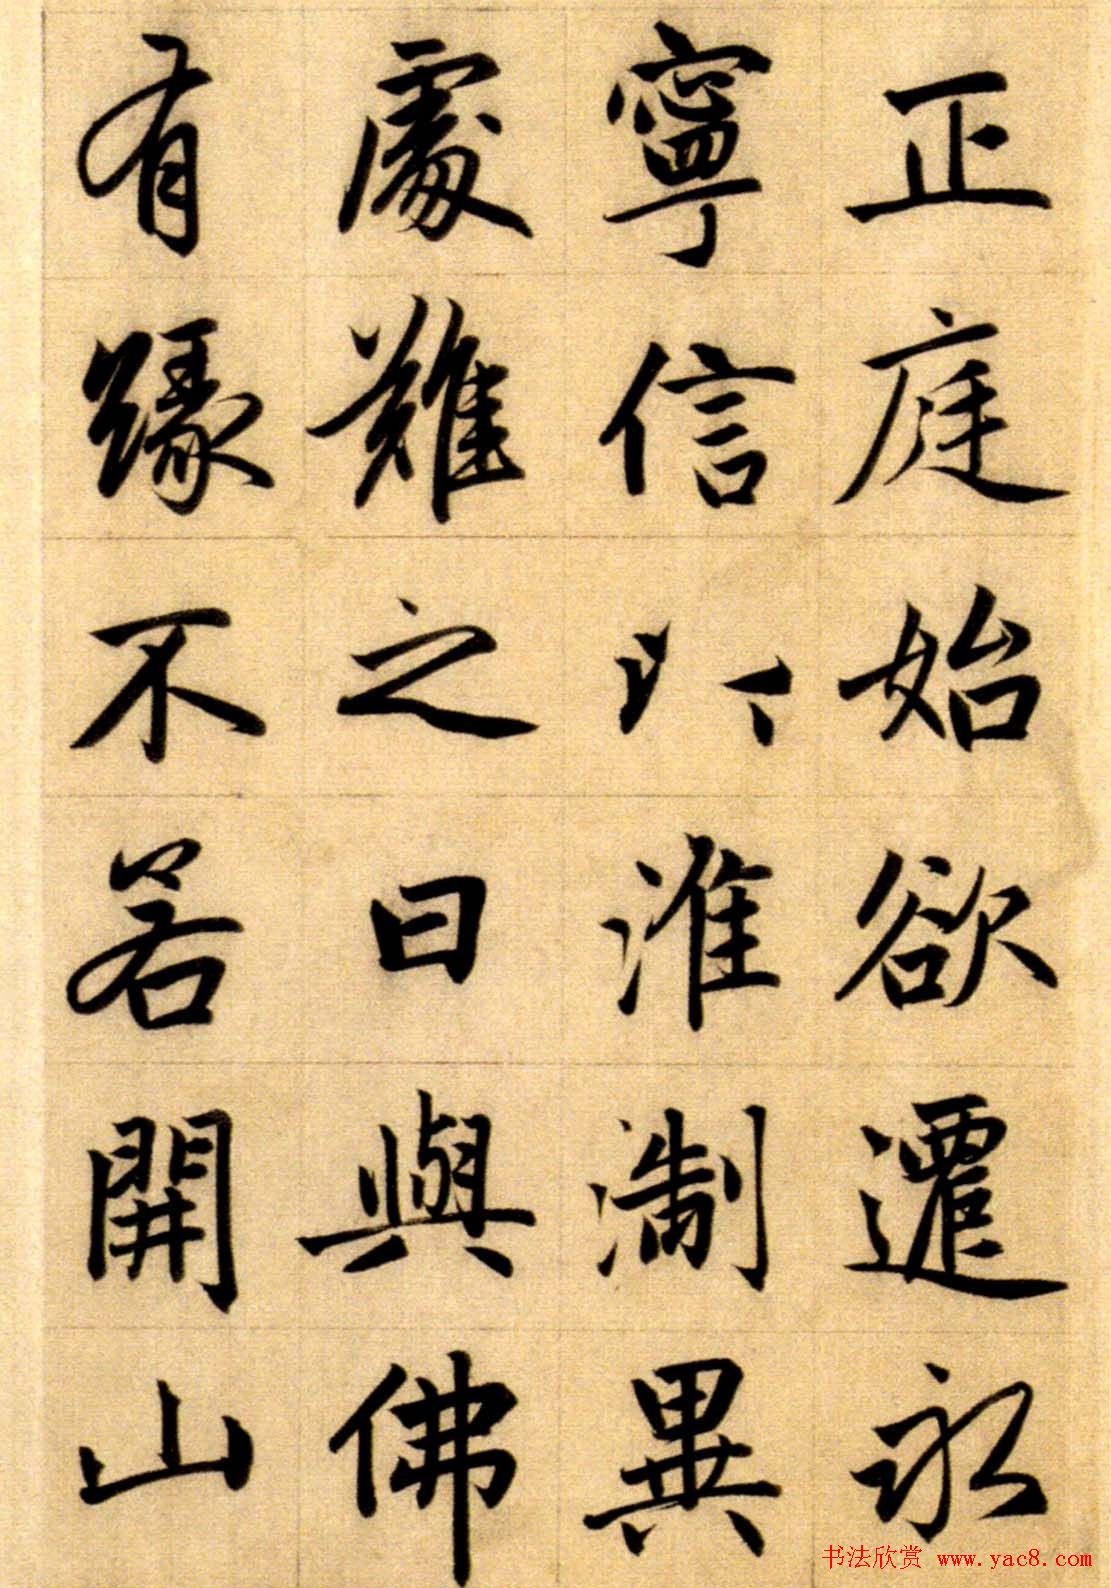 正庭始欲遷永
寧信淮淛異
處難之曰與佛
有緣不若開山
书法欣赏 www.yac8.com